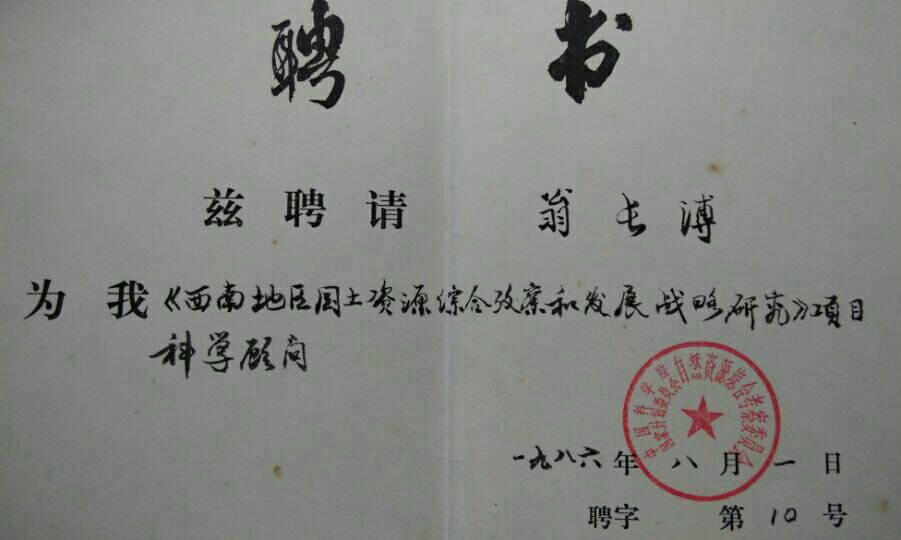 聘书
兹聘请 翁长溥
为我《西南地区国土资源综合考察和发展战略研究》项目
科学顾问
中国科学院自然资源综合考察委员会
国家计划委员会
一九八六年八月一日
聘字 第10号